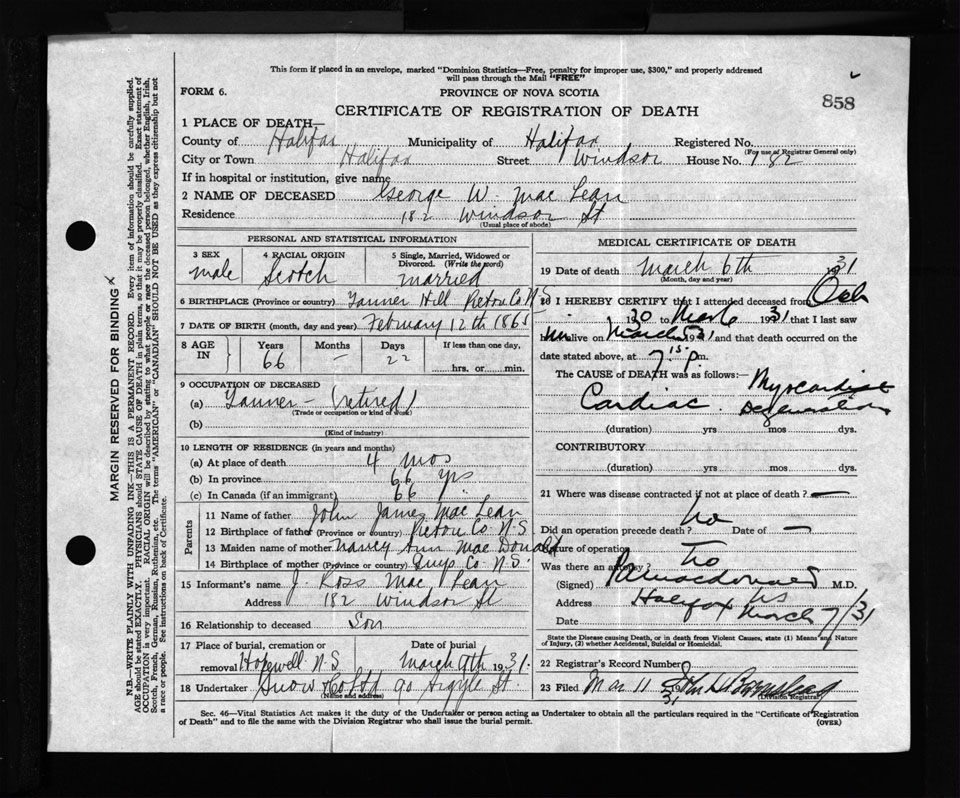 This form if placed in an envelope, marked "Dominion Statistics—Free, penalty for improper use, $300," and properly addressed
will pass through the Mail "FREE"
FORM 6.
PROVINCE OF NOVA SCOTIA
858
CERTIFICATE OF REGISTRATION OF DEATH
1 PLACE OF DEATH—
County of Halifax Municipality of Halifax Registered No.
(For use of Registrar General only)
City or Town Halifax Street Windsor House No. 182
If in hospital or institution, give name
2 NAME OF DECEASED George W. Mac Lean
Residence 182 Windsor St
(Usual place of abode)
PERSONAL AND STATISTICAL INFORMATION
3 SEX
male
4 RACIAL ORIGIN
Scotch
5 Single, Married, Widowed or
Divorced. (Write the word)
married
6 BIRTHPLACE (Province or country) Tanner Hill Pictou Co. N S
7 DATE OF BIRTH (month, day and year) February 12th 1865
8 AGE IN
Years
66
Months
–
Days
22
If less than one day,
hrs. or min.
9 OCCUPATION OF DECEASED
(a) Tanner – (retired)
(Trade or occupation or kind of work)
(b)
(Kind of industry)
10 LENGTH OF RESIDENCE (in years and months)
(a) At place of death 4 mos
(b) In province 66 yrs
(c) In Canada (if an immigrant) 66
Parents
11 Name of father John James Mac Lean
12 Birthplace of father (Province or country) Pictou Co. N S
13 Maiden name of mother Nancy Ann Mac Donald
14 Birthplace of mother (Province or country) Co N.S.
15 Informant's name J Ross Mac Lean
Address 182 Windsor St
16 Relationship to deceased Son
17 Place of burial, cremation or
removal Hopewell N.S Date of burial March 9th 1931.
18 Undertaker Snow & Co Ltd 90 Argyle St
(Name and address)
MEDICAL CERTIFICATE OF DEATH
19 Date of death March 6th 1931
(Month, day and year)
20 I HEREBY CERTIFY that I attended deceased from Oct
1930 to Mar 6 1931 that I last saw
him alive on March 5 1931 and that death occurred on the
date stated above, at 7 15 p.m.
The CAUSE of DEATH was as follows:— Myocardial
Cardiac. Degeneration
(duration) yrs mos dys.
CONTRIBUTORY
(duration) yrs mos dys.
21 Where was disease contracted if not at place of death? —
Did an operation precede death? no Date of —
Nature of operation
Was there an autopsy? no
(Signed) Macdonald M.D.
Address Halifax NS
Date March 7/31
State the Disease causing Death, or in death from Violent Causes, state (1) Means and Nature
of Injury, (2) whether Accidental, Suicidal or Homicidal.
22 Registrar's Record Number
23 Filed Mar 11 31 John
(Division Registrar)
Sec. 46—Vital Statistics Act makes it the duty of the Undertaker or person acting as Undertaker to obtain all the particulars required in the "Certificate of Registration
of Death" and to file the same with the Division Registrar who shall issue the burial permit.
(OVER)
MARGIN RESERVED FOR BINDING
N.B.—WRITE PLAINLY WITH UNFADING INK—THIS IS A PERMANENT RECORD. Every item of information should be carefully supplied.
AGE should be stated EXACTLY. PHYSICIANS should STATE CAUSE OF DEATH in plain terms, so that it may be properly classified. Exact statement of
OCCUPATION is very important. RACIAL ORIGIN will be described by stating to what people or race the deceased person belonged, whether English, Irish,
Scotch, French, German, Russian, Ruthenian, etc. The terms "AMERICAN" or "CANADIAN" SHOULD NOT BE USED as they express citizenship but not
a race or people. See instructions on back of Certificate.